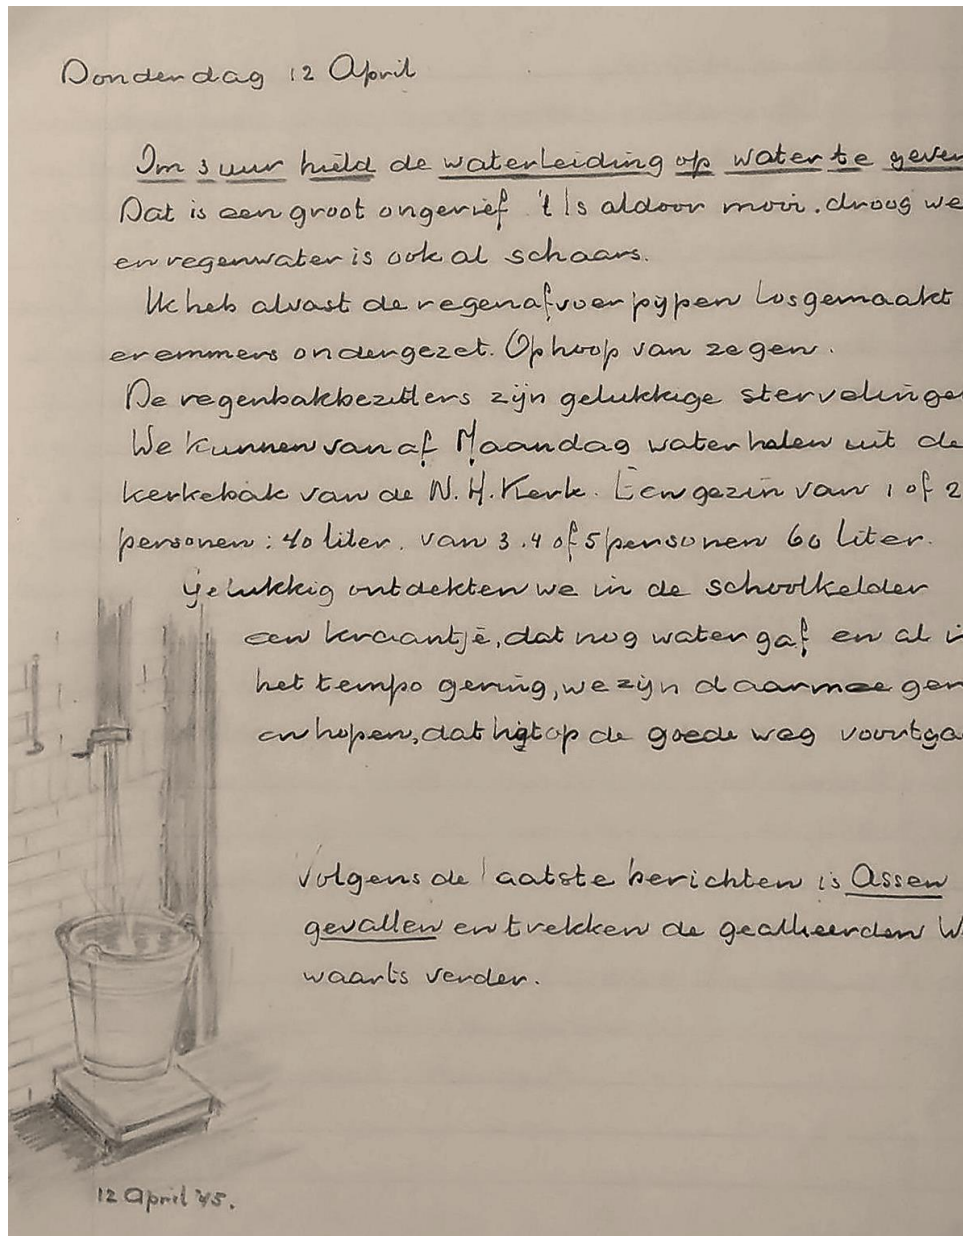 Donderdag 12 April
Om 3 uur hield de waterleiding op water te geven
Dat is een groot ongerief 't Is aldoor mooi. droog we
en regenwater is ook al schaars.
Ik heb alvast de regenafvoerpypen losgemaakt
er emmers ondergezet. Op hoop van zegen.
De regenbakbezitters zijn gelukkige stervelinge
We kunnen vanaf Maandag water halen uit de
kerkebak van de N. H. Kerk. Een gezin van 1 of 2
personen : 40 liter. van 3. 4 of 5 personen 60 liter.
gelukkig ontdekten we in de schoolkelder
een kraantje, dat nog water gaf en al i
het tempo gering, we zijn daarmee ger
en hopen, dat het op de goede weg voortga
Volgens de laatste berichten is Assen
gevallen en trekken de geallieerden W
waarts verder.
12 April '45.